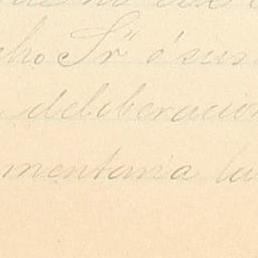 cho Sr é sus
deliberacion
mentaria la